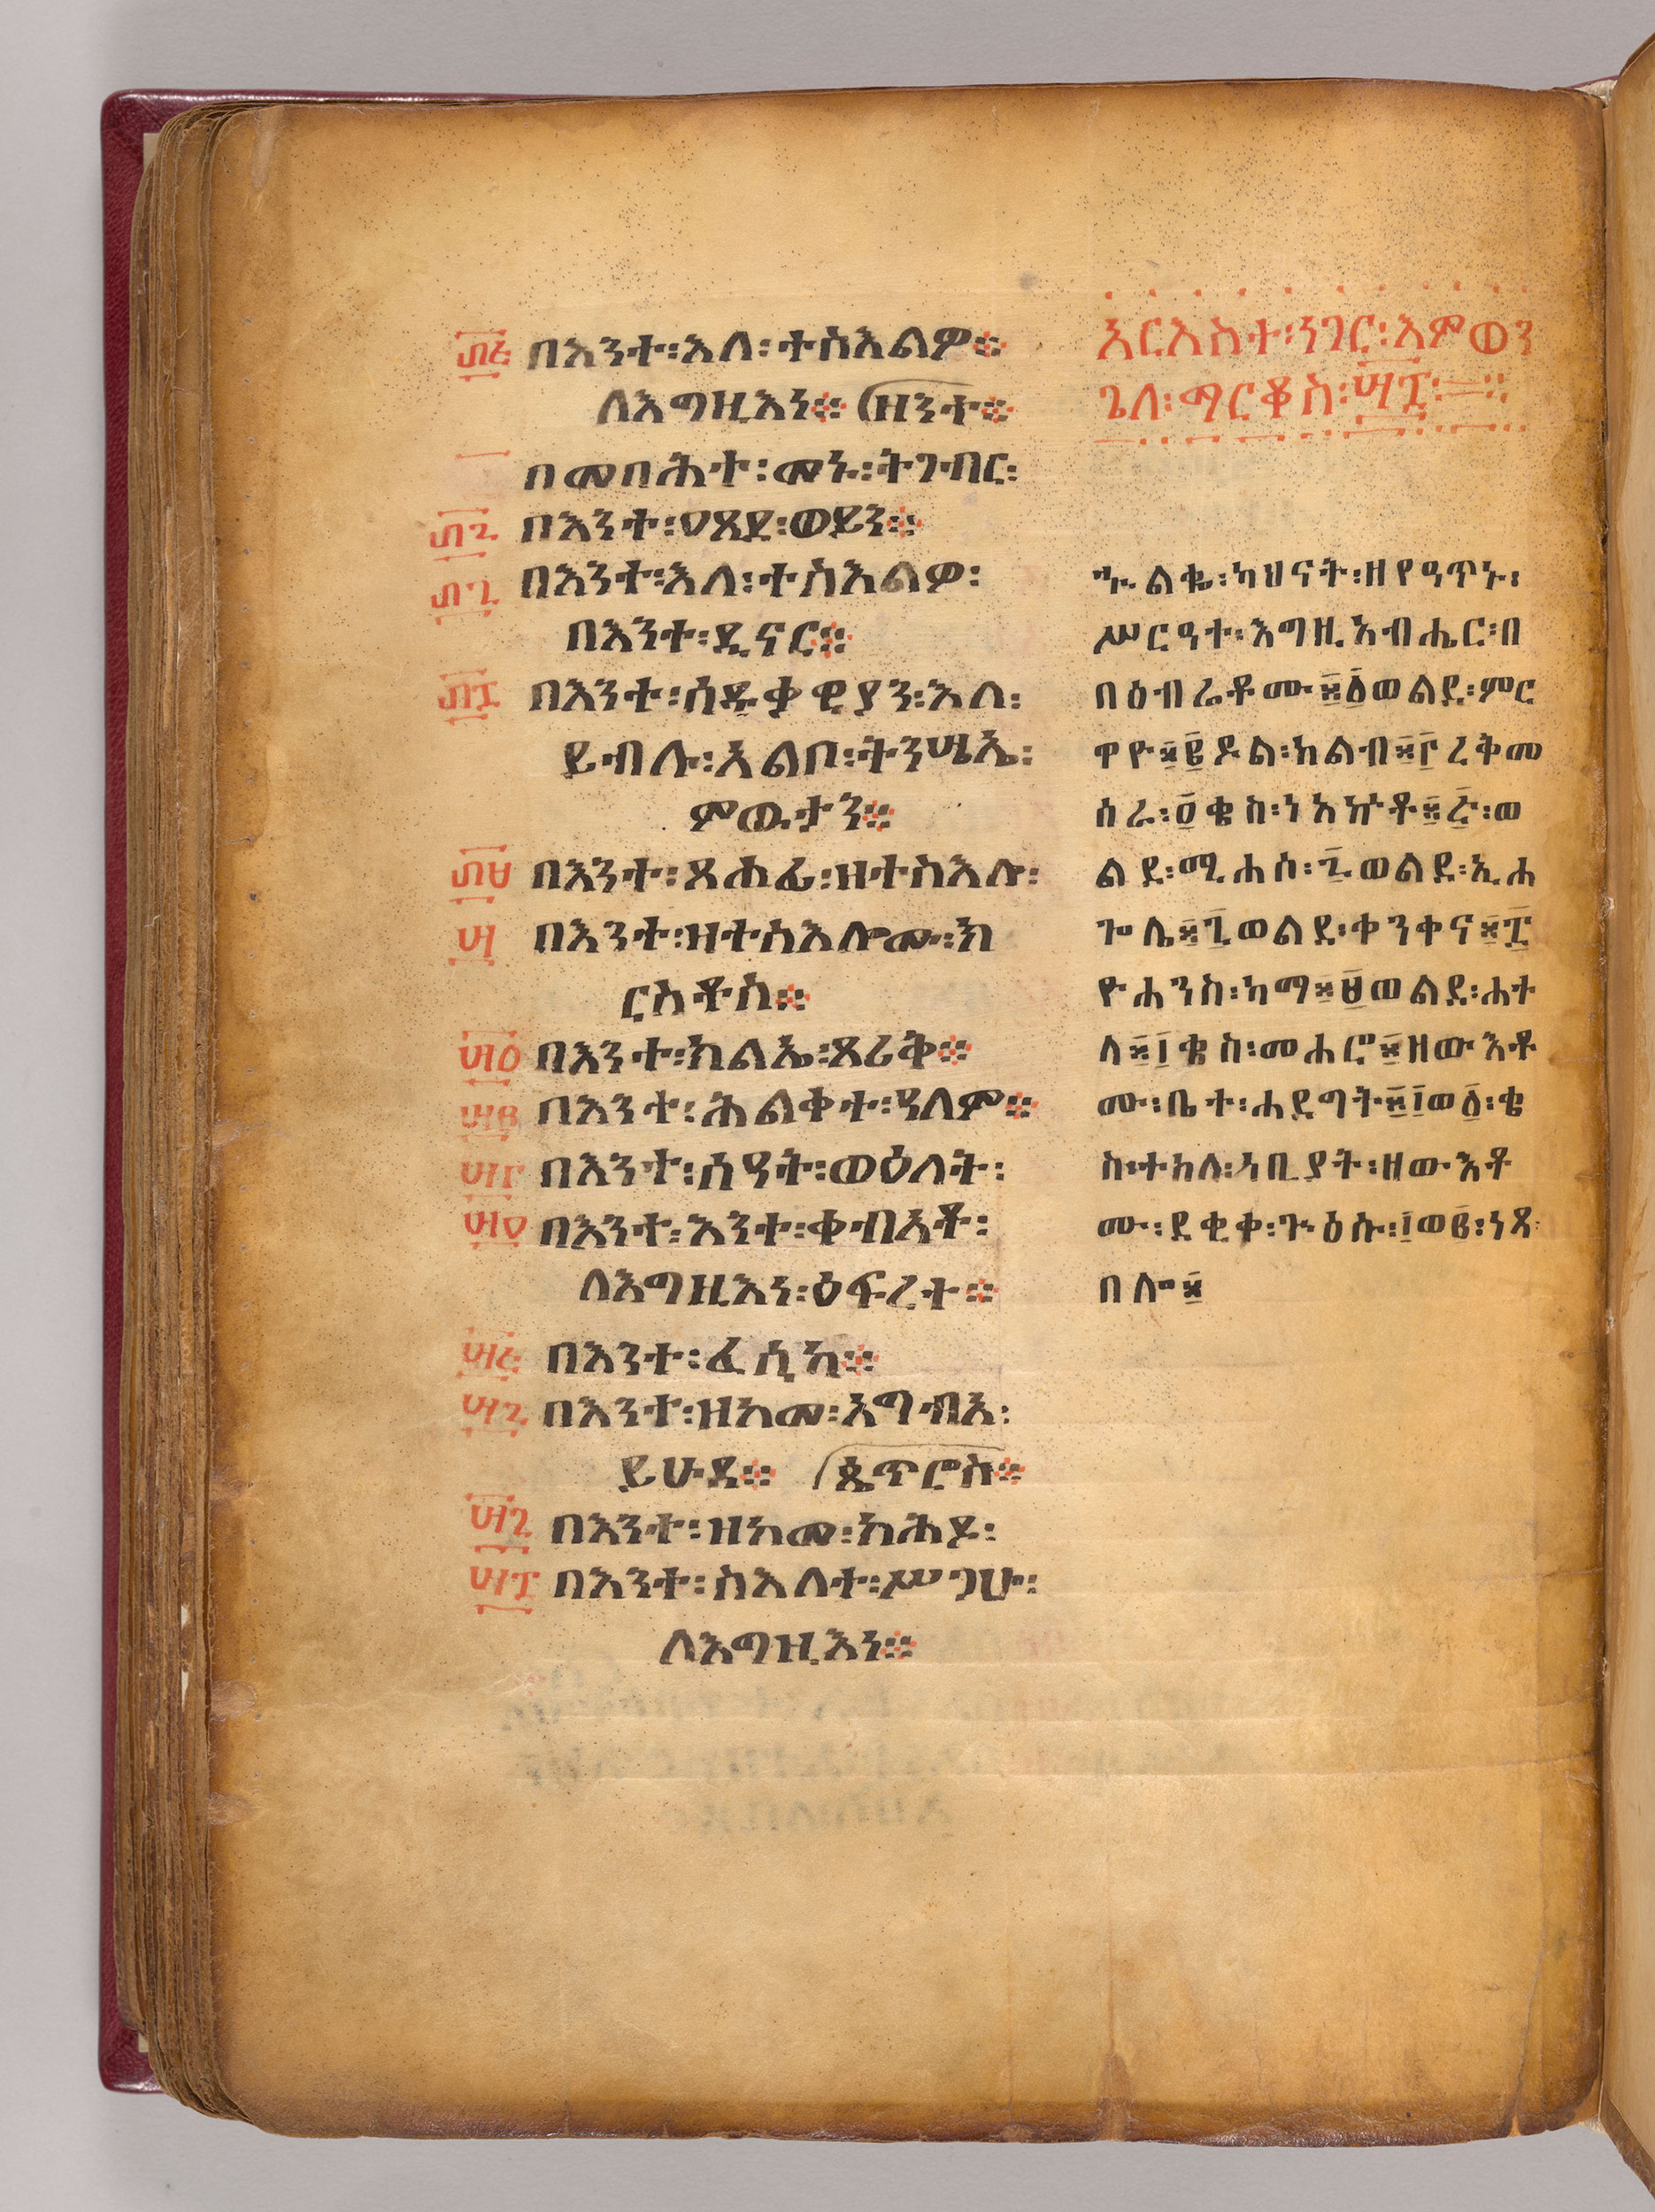 ፴፭ በእንተ፡እለ፡ተስእልዎ፨
ለእግዚእነ፨ (ዘንተ፨
በመበሕተ፡መኑ፡ትገብር፡
፴፮ በእንተ፡ዐጸደ፡ወይን፨
፴፯ በእንተ፡እለ፡ተስእልዎ፡
በእንተ፡ዲናር፨
፴፰ በእንተ፡ሰዱቃዊያን፡እለ፡
ይብሉ፡አልቦ፡ትንሣኤ፡
ምዉታን፨
፴፱ በእንተ፡ጸሐፊ፡ዘተስእሎ፡
፵ በእንተ፡ዝተስእሎሙ፡ክ
ርስቶስ፨
፵፩ በእንተ፡ክልኤ፡ጸሪቅ፨
፵፪ በእንተ፡ሕልቀተ፡ዓለም፨
፵፫ በእንተ፡ሰዓት፡ወዕለት፡
፵፬ በእንተ፡እንተ፡ቀብአቶ፡
ለእግዚእነ፡ዕፍረተ፨
፵፭ በእንተ፡ፈሲካ፨
፵፮ በእንተ፡ዘከመ፡አግብአ፡
ይሁዳ፨ (ጴጥሮስ፨
፵፯ በእንተ፡ዘከመ፡ክሕዶ፡
፵፰ በእንተ፡ስእለተ፡ሥጋሁ፡
ለእግዚእነ፨
አርእስተ፡ነገር፡እምወን
ጌለ፡ማርቆስ፡፵፰፡
ኍልቈ፡ካህናት፡ዘየዓጥኑ፡
ሥርዓተ፡እግዚአብሔር፡በ
በዕብሬቶሙ፡፩ወልደ፡ምር
ዋዮ፡፪ዶል፡ከልብ፡፫ረቅመ
ሰራ፡፬ቄስ፡ነአኵቶ፡፭፡ወ
ልደ፡ሚሐሶ፡፮ወልደ፡ኢሐ
ጐሌ፡፯ወልደ፡ቀንቀና፡፰
ዮሐንስ፡ካማ፡፱ወልደ፡ሐተ
ለ፡፲ቄስ፡መሐሮ፡ዘውእቶ
ሙ፡ቤተ፡ሐደግት፡፲ወ፩፡ቄ
ስ፡ተከለ፡አቢያት፡ዘውእቶ
ሙ፡ደቂቀ፡ጕዕሱ፡፲ወ፪፡ነጸ
በሎ፡